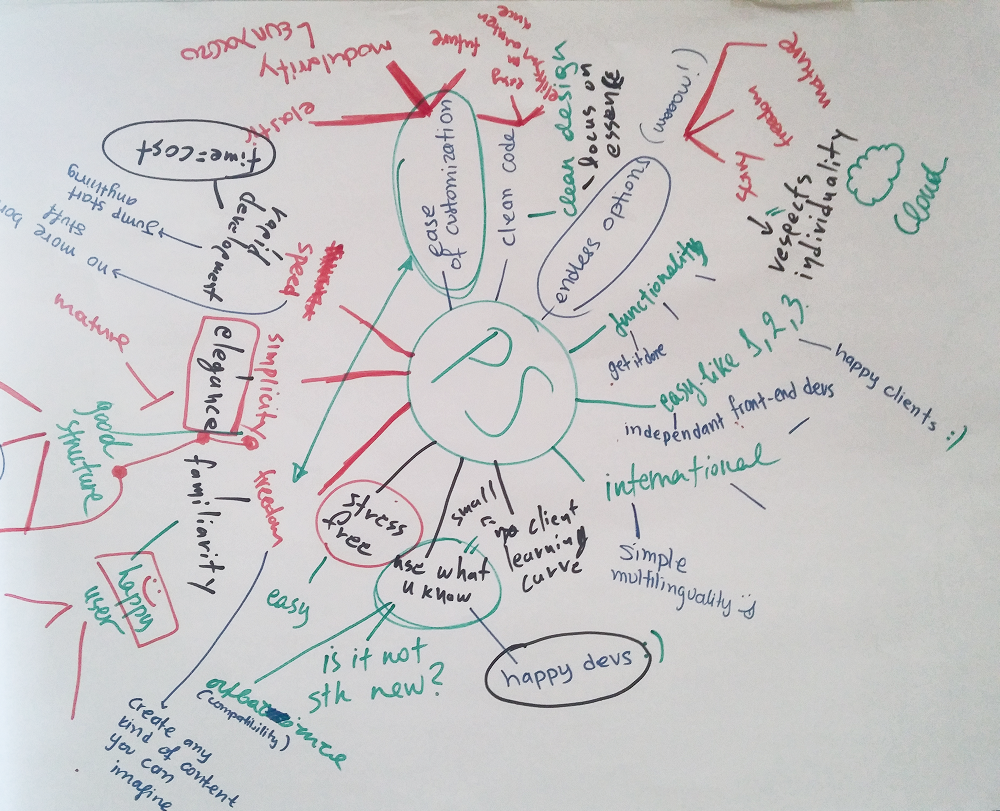 PS
ease
of customization
modularity
elastic
future
easy
clean code
clean design
- focus on
essence
endless options
(wooow!)
mature
freedom
respects
individuality
cloud
functionality
get it done
easy-like 1,2,3.
happy clients :)
independant front-end devs
international
simple
multilinguality :)
small
no client
learning
curve
use what
u know
happy devs :)
is it not
sth new?
(compatibility)
stress
free
easy
freedom
create any
kind of content
you can
imagine
simplicity
elegance
familiarity
good
structure
mature
happy
user
speed
rapid
development
time=cost
Jump start
anything
no more
stuff